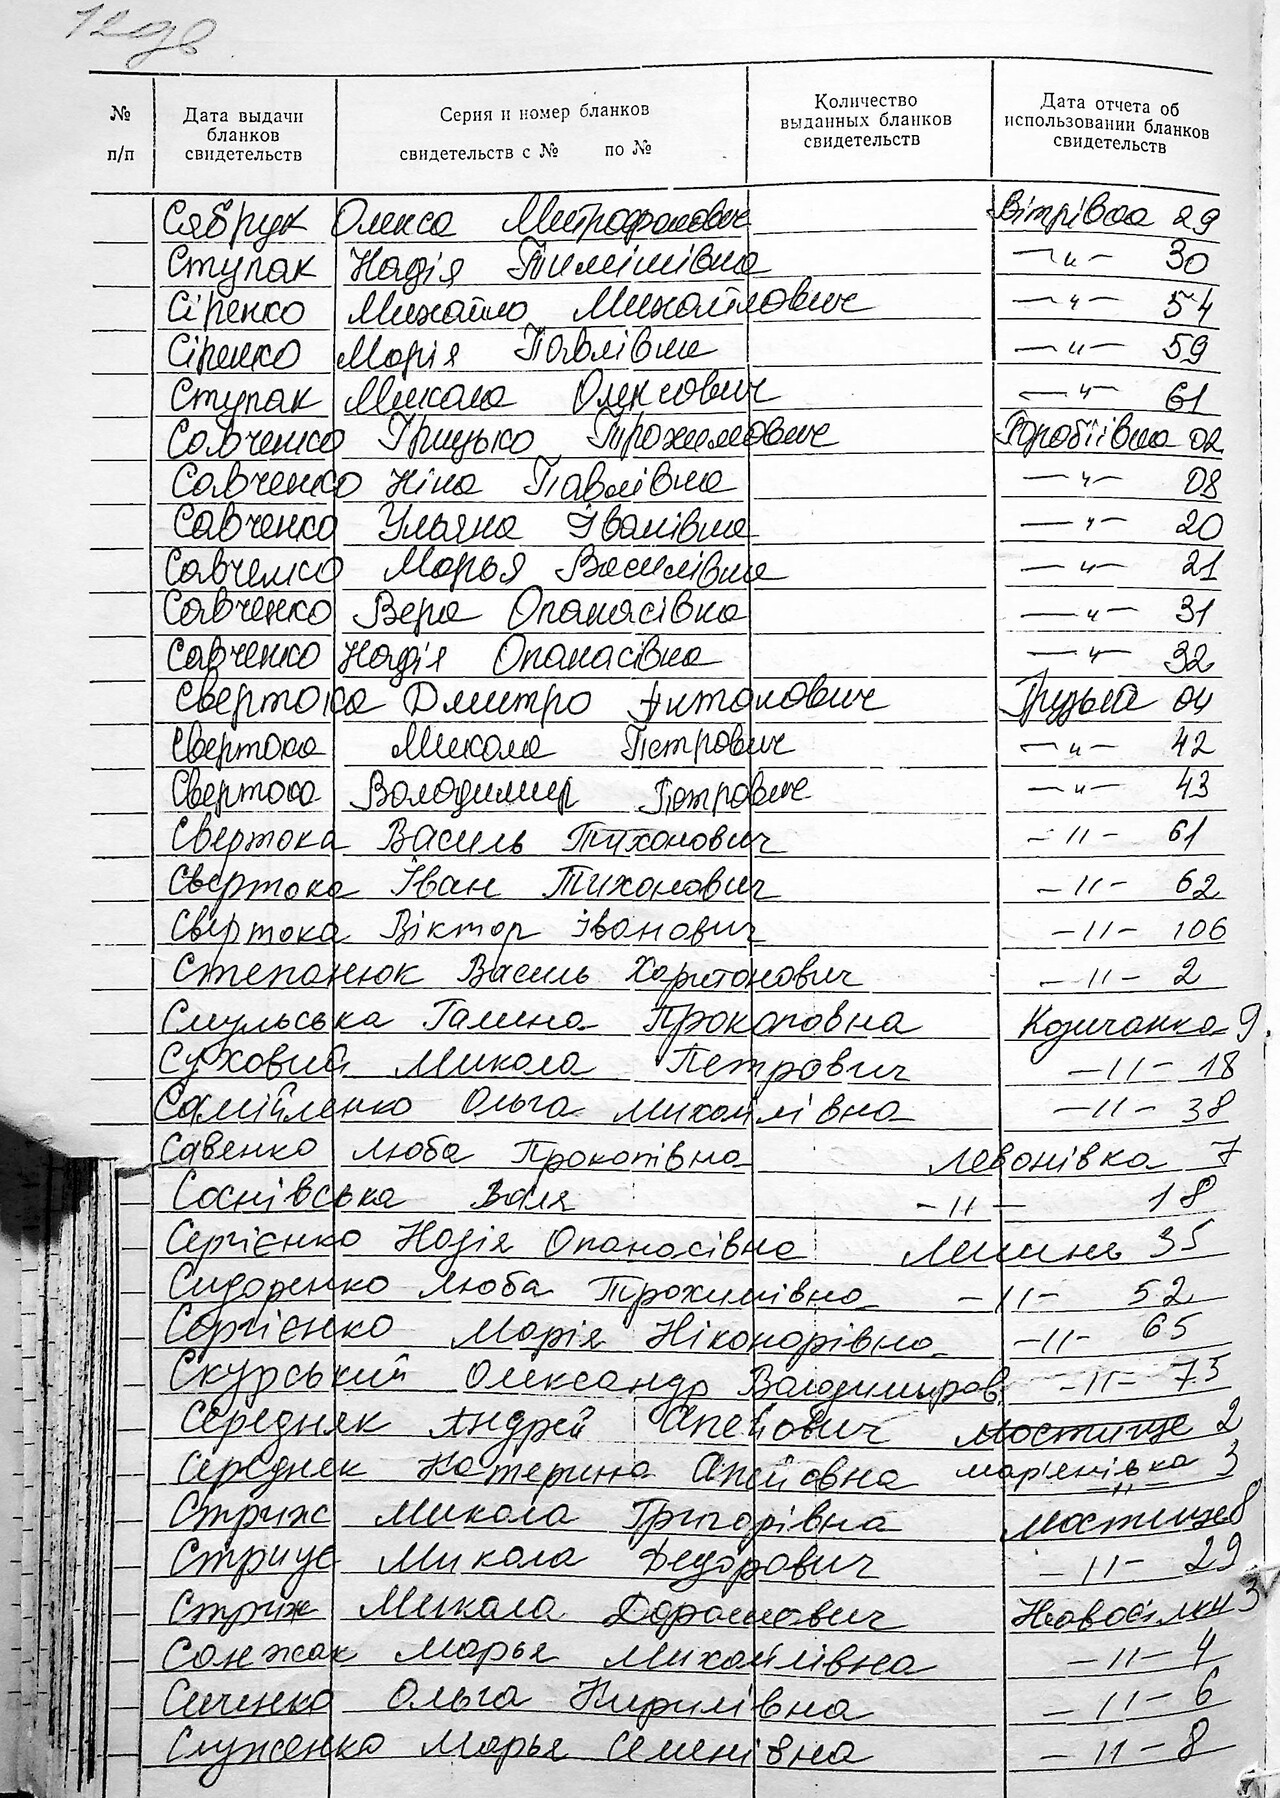 № п/п
Дата выдачи бланков свидетельств
Серия и номер бланков свидетельств с № по №
Количество выданных бланков свидетельств
Дата отчета об использовании бланков свидетельств
Сябрук Олекса Митрофанович Вітрівка 29
Ступак Надія Тимішівна —〃— 30
Сіренко Михайло Михайлович —〃— 54
Сіренко Марія Павлівна —〃— 59
Ступак Микола Олексович —〃— 61
Савченко Грицько Трохимович Горобіївка 02
Савченко Ніна Павлівна —〃— 08
Савченко Ульяна Іванівна —〃— 20
Савченко Марья Василівна —〃— 21
Савченко Вера Опанасівна —〃— 31
Савченко Надія Опанасівна —〃— 32
Свертока Дмитро Антонович Грузьке 04
Свертока Микола Петрович —〃— 42
Свертока Володимир Петрович —〃— 43
Свертока Василь Тихонович —〃— 61
Свертока Іван Тихонович —〃— 62
Свертока Віктор Іванович —〃— 106
Степанюк Василь Харитонович —〃— 2
Смульська Галина Прокоповна Козичанка 9.
Суховий Микола Петрович —〃— 18
Самійленко Ольга Михайлівна —〃— 38
Савенко Люба Прокопівна Леонівка 7
Соснівська Валя —〃— 18
Сергієнко Надія Опанасівна Лишня 35
Сидоренко Люба Трохимівна —〃— 52
Сергієнко Марія Ніконорівна —〃— 65
Скурський Олександр Володимиров. —〃— 75
Середняк Андрей Мостище 2
Середняк Катерина Мар'янівка 3
Стриж Микола Григорівна —〃— Мостище 8
Микола Федорович —〃— 29
Стриж Микола Дорошович Новосілки 3
Санжак Марья Михайлівна —〃— 4
Сиченко Ольга Кирилівна —〃— 6
Служенко Марья Семенівна —〃— 8